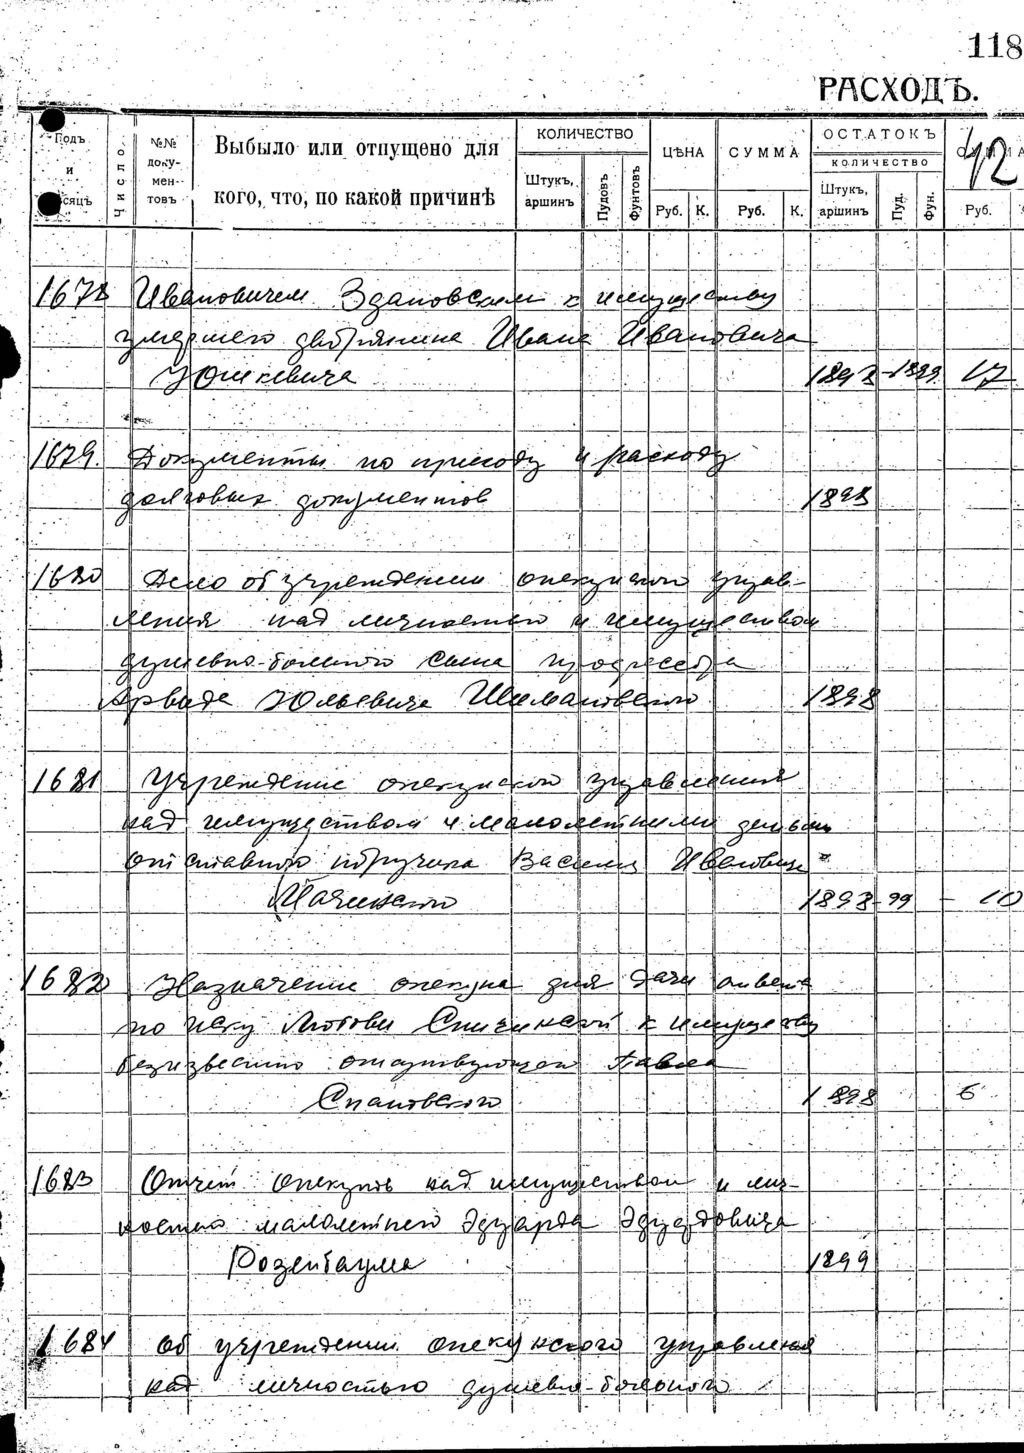 118
РАСХОДЪ.
Годъ и мѣсяцъ
Число
№№ доку-мен-товъ
Выбыло или отпущено для
кого, что, по какой причинѣ
КОЛИЧЕСТВО
Штукъ, аршинъ
Пудовъ
Фунтовъ
ЦѢНА
Руб. К.
СУММА
Руб. К.
ОСТАТОКЪ
КОЛИЧЕСТВО
Штукъ, аршинъ
Пуд.
Фун.
Руб.
42
1678 Ивановичем Здановским к имуществу
умершего дворянина Ивана Ивановича
Юшкевича 1898-1899 17
1679. Документы по приходу и расходу
долговых документов 1898
1680 Дело об учреждении опекунского управ-
ления над личностью и имуществом
душевно-больного сына профессора
Арвида Юльевича Шимановского 1898
1681 Учреждение опекунского управления
над имуществом и малолетними детьми
отставного поручика Василия Ивановича
1898-99 - 10
1682 Назначение опекуна для дачи ответа
по иску Любови к имуществу
безизвестно отсутствующего Павла
1898 6
1683 Отчет опекунов над имуществом и лич-
ностью малолетнего Эдуарда Эдуардовича
Розенбаума 1899
1684 Об учреждении опекунского управления
над личностью душевно-больного